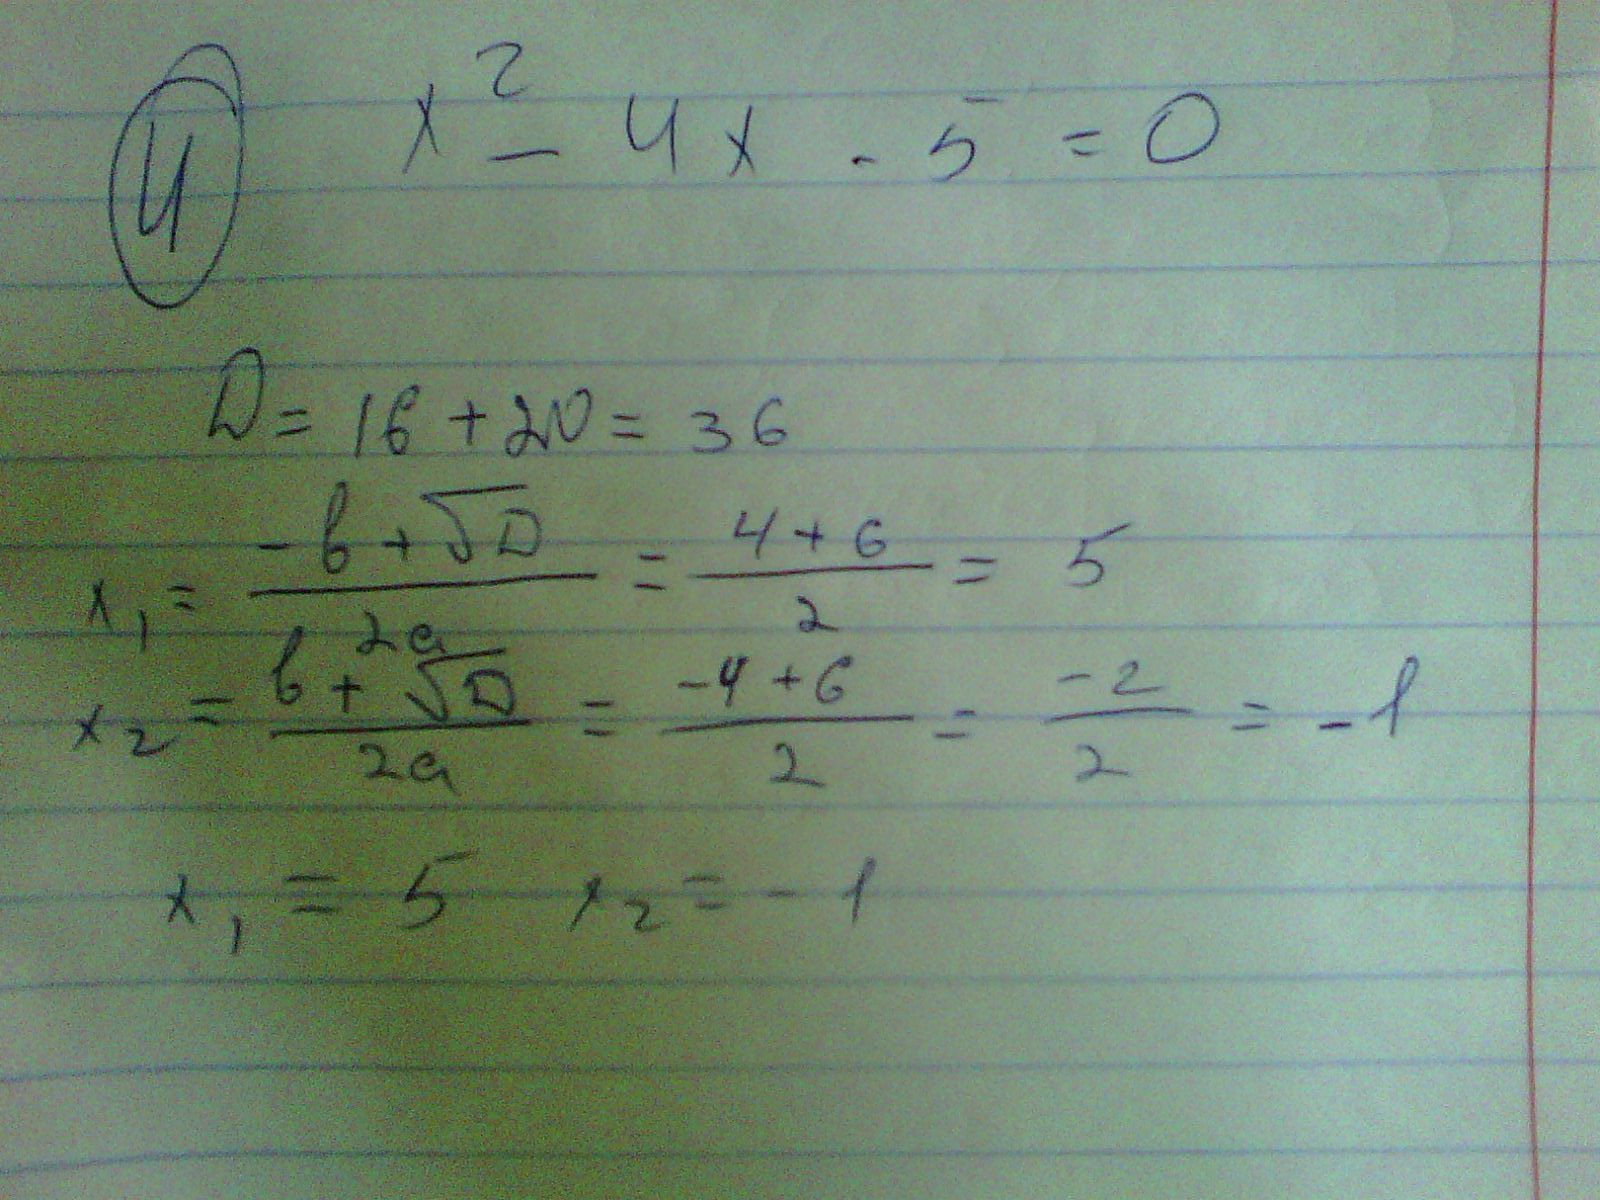 4 x² - 4x - 5 = 0
D = 16 + 20 = 36
x₁ = (-b + √D) / 2a = (4 + 6) / 2 = 5
x₂ = (b + √D) / 2a = (-4 + 6) / 2 = -2 / 2 = -1
x₁ = 5 x₂ = -1